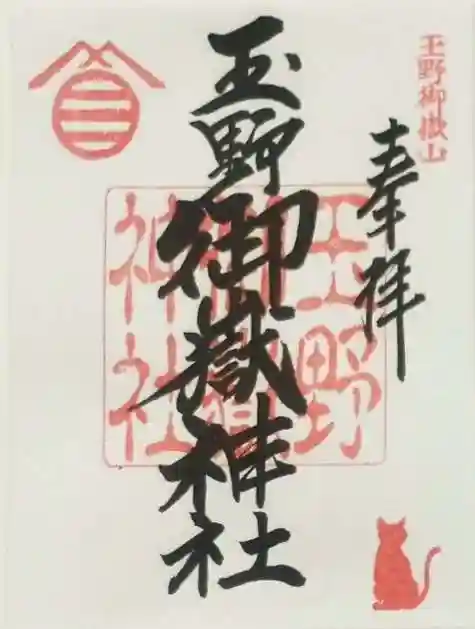 玉野御嶽山
奉拝
玉野御嶽神社
玉野
御嶽
神社